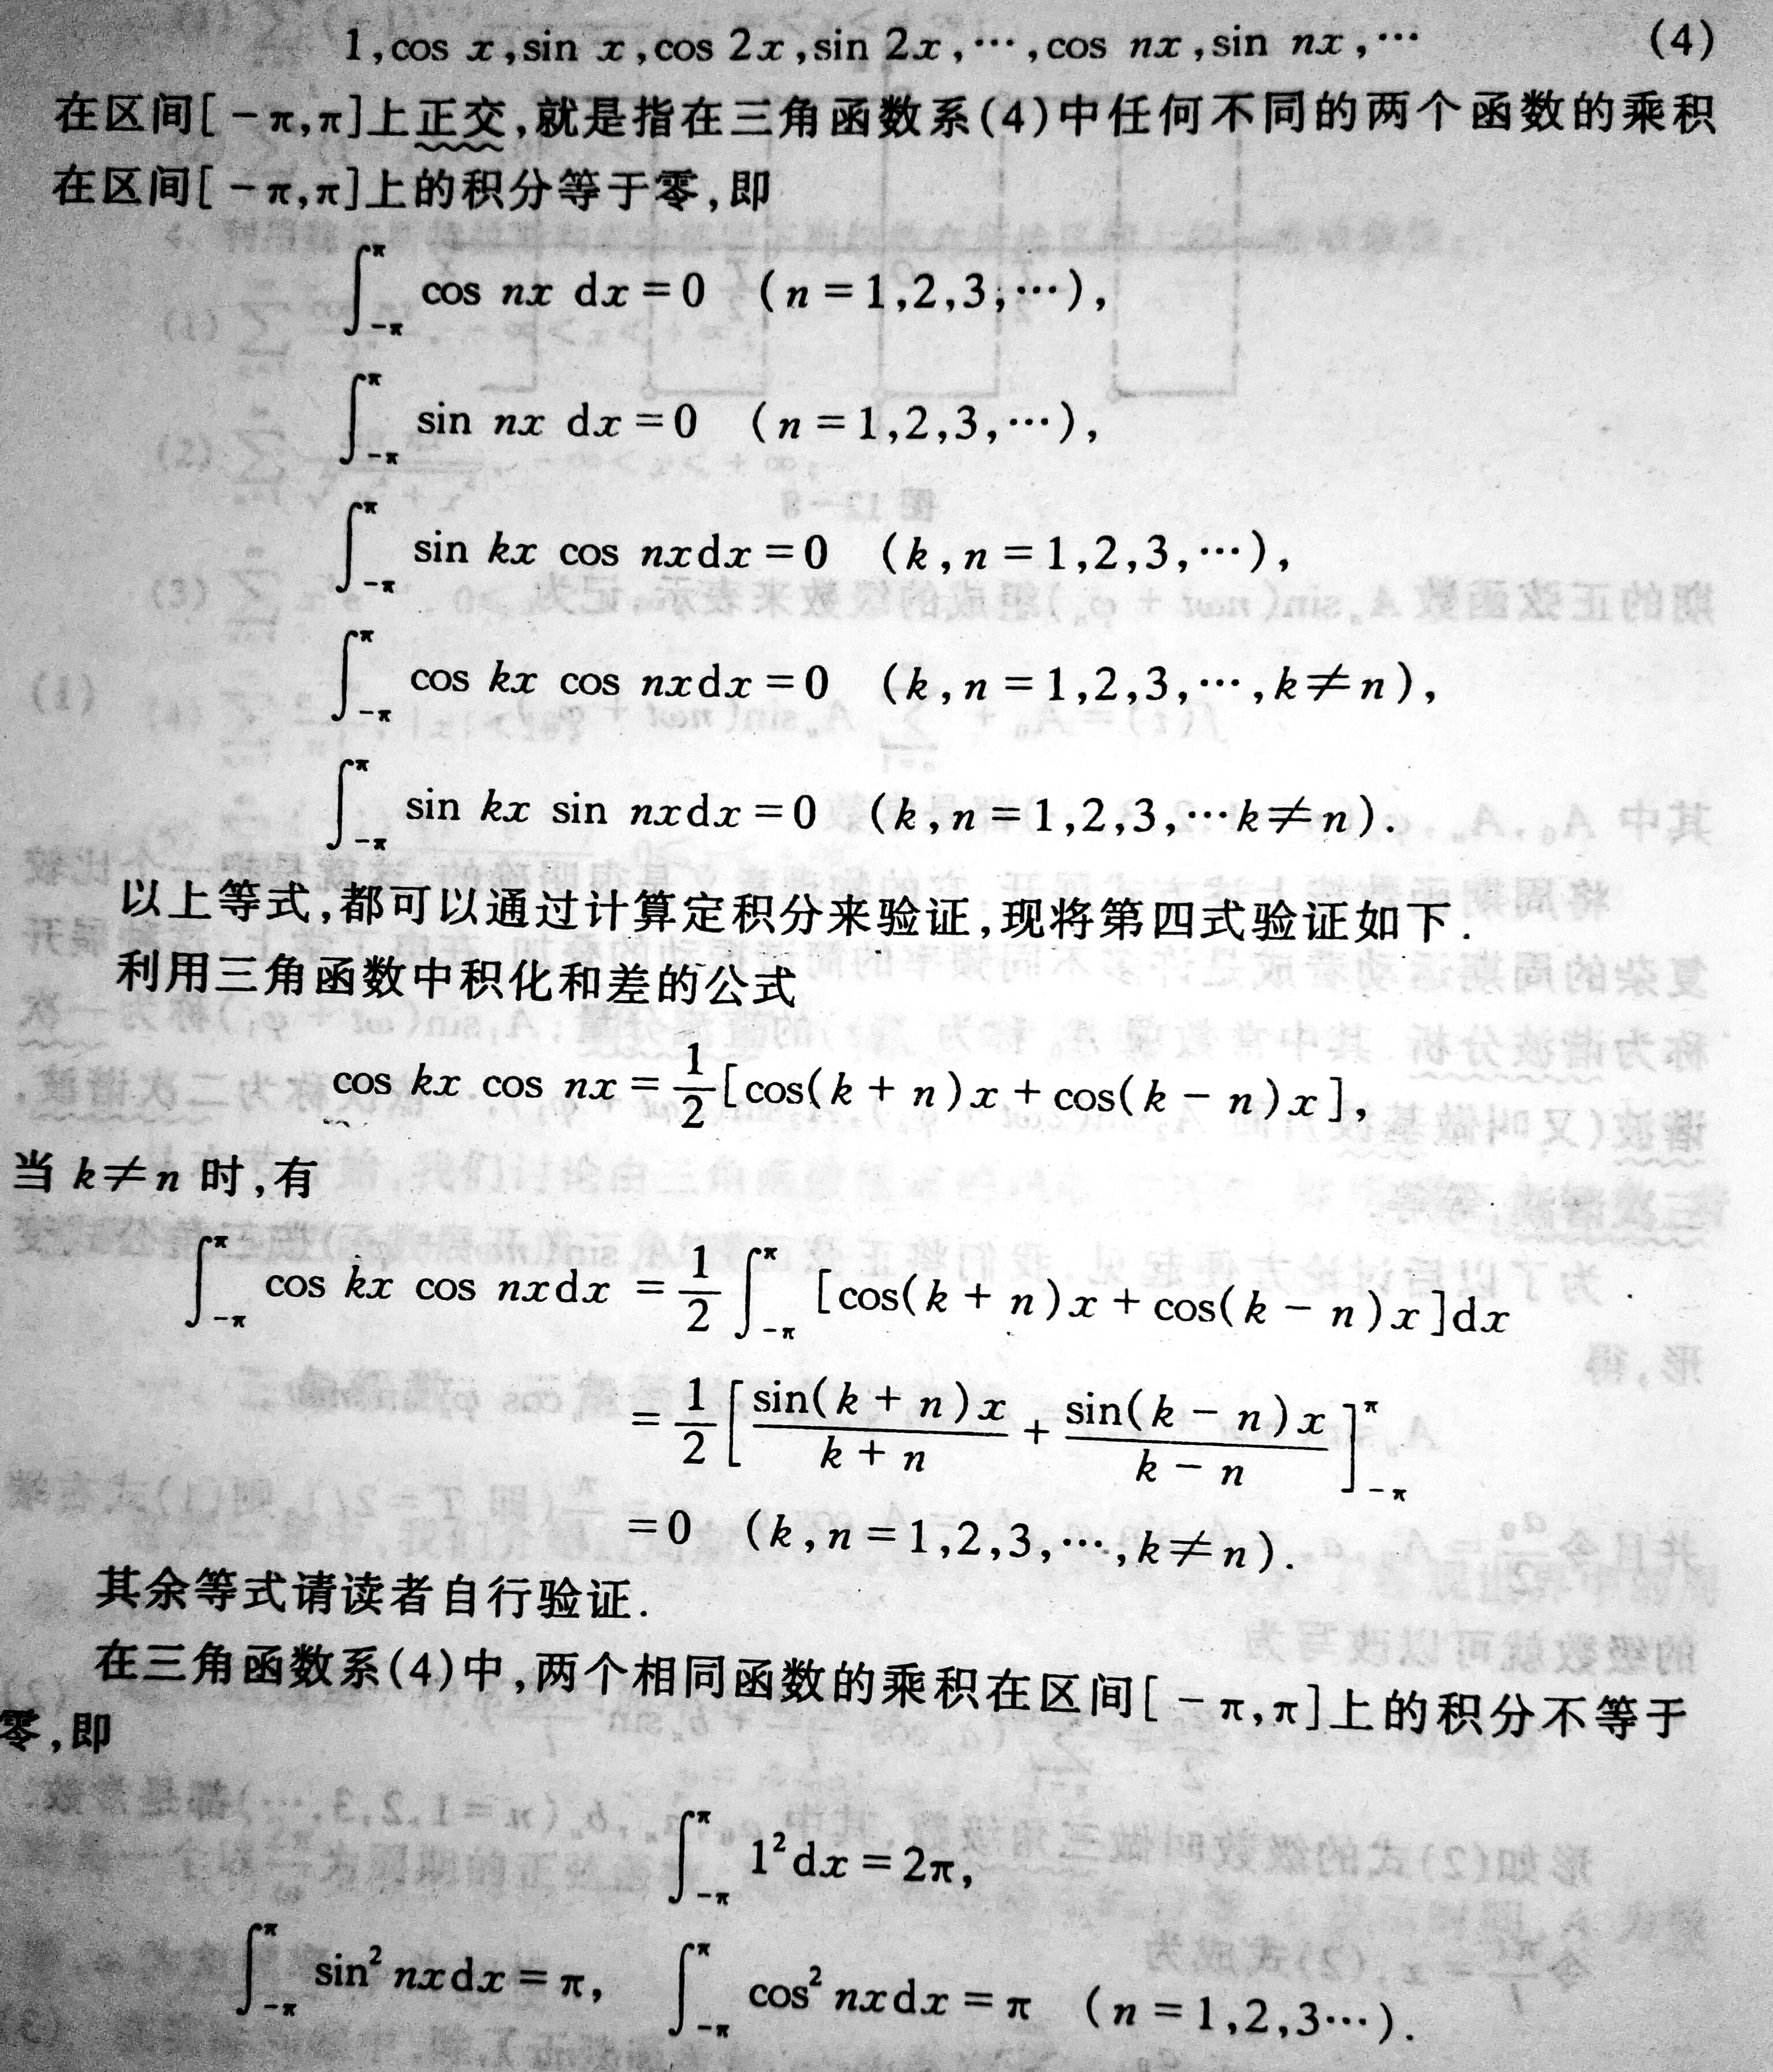 1,cos x,sin x,cos 2x,sin 2x,…,cos nx,sin nx,… (4)
在区间[-π,π]上正交,就是指在三角函数系(4)中任何不同的两个函数的乘积
在区间[-π,π]上的积分等于零,即
∫_{-π}^{π} cos nx dx=0 (n=1,2,3,…),
∫_{-π}^{π} sin nx dx=0 (n=1,2,3,…),
∫_{-π}^{π} sin kx cos nxdx=0 (k,n=1,2,3,…),
∫_{-π}^{π} cos kx cos nxdx=0 (k,n=1,2,3,…,k≠n),
∫_{-π}^{π} sin kx sin nxdx=0 (k,n=1,2,3,…k≠n).
以上等式,都可以通过计算定积分来验证,现将第四式验证如下.
利用三角函数中积化和差的公式
cos kx cos nx=\frac{1}{2}[cos(k+n)x+cos(k-n)x],
当 k≠n 时,有
∫_{-π}^{π} cos kx cos nxdx =\frac{1}{2}∫_{-π}^{π} [cos(k+n)x+cos(k-n)x]dx
=\frac{1}{2}[\frac{sin(k+n)x}{k+n}+\frac{sin(k-n)x}{k-n}]_{-π}^{π}
=0 (k,n=1,2,3,…,k≠n).
其余等式请读者自行验证.
在三角函数系(4)中,两个相同函数的乘积在区间[-π,π]上的积分不等于
零,即
∫_{-π}^{π} 1²dx=2π,
∫_{-π}^{π} sin² nxdx=π, ∫_{-π}^{π} cos² nxdx=π (n=1,2,3…).